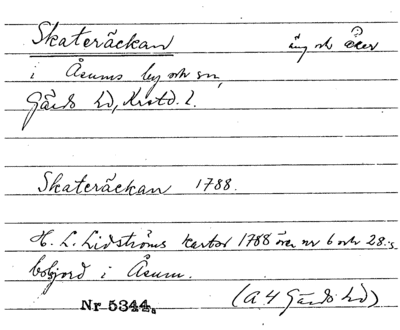 Skateräckan äng och åker
i Åsums by och sn,
Gärds hd, Kristd. l.
Skateräckan 1788.
H. L. Lidströms kartor 1788 över nr 6 och 28:s
boljord i Åsum.
(A 4 Gärds hd)
Nr 5344a